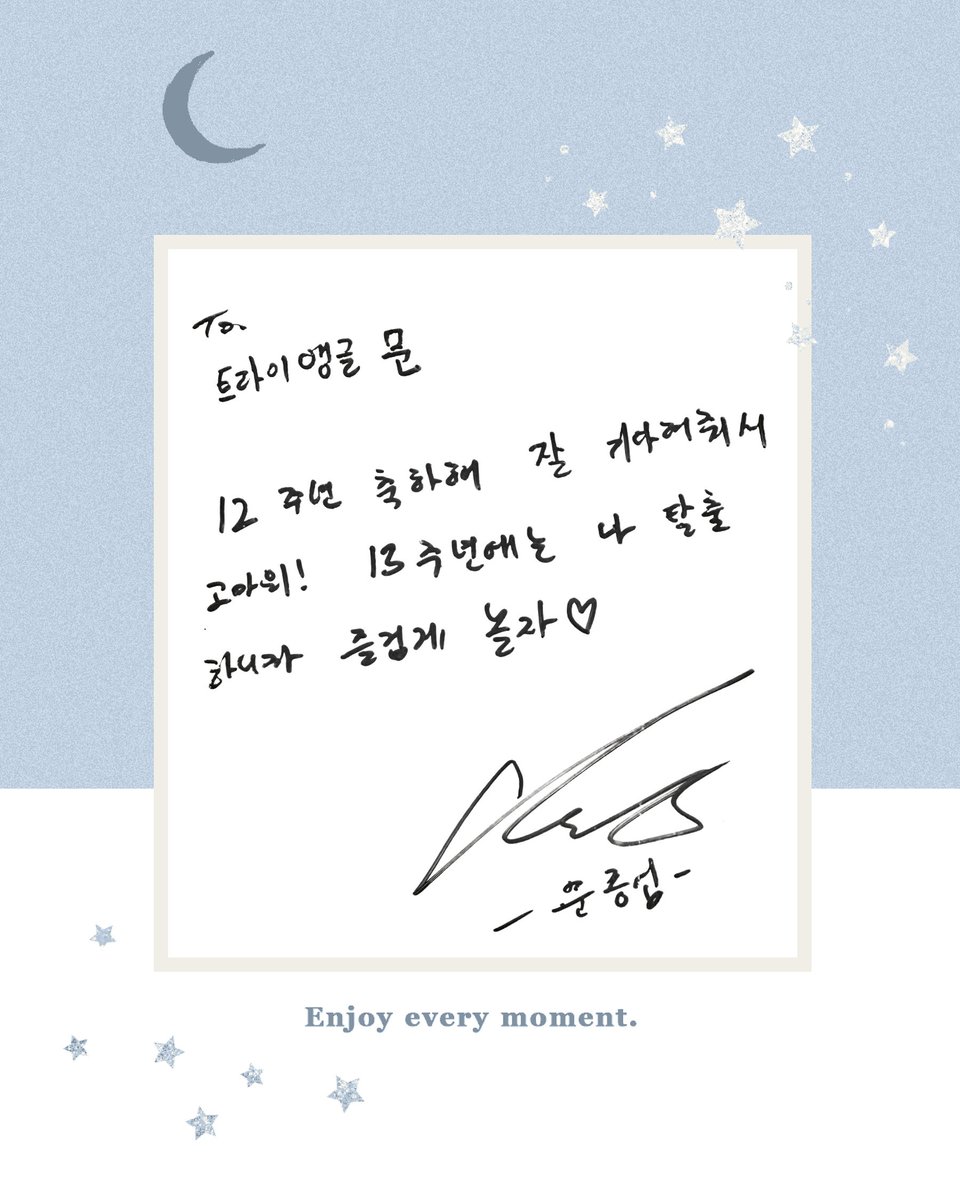 To.
트라이앵글 문
12 주년 축하해 잘 기다려줘서
고마워! 13주년에는 나 탈출
하니까 즐겁게 놀자♡
- 문종업 -
Enjoy every moment.